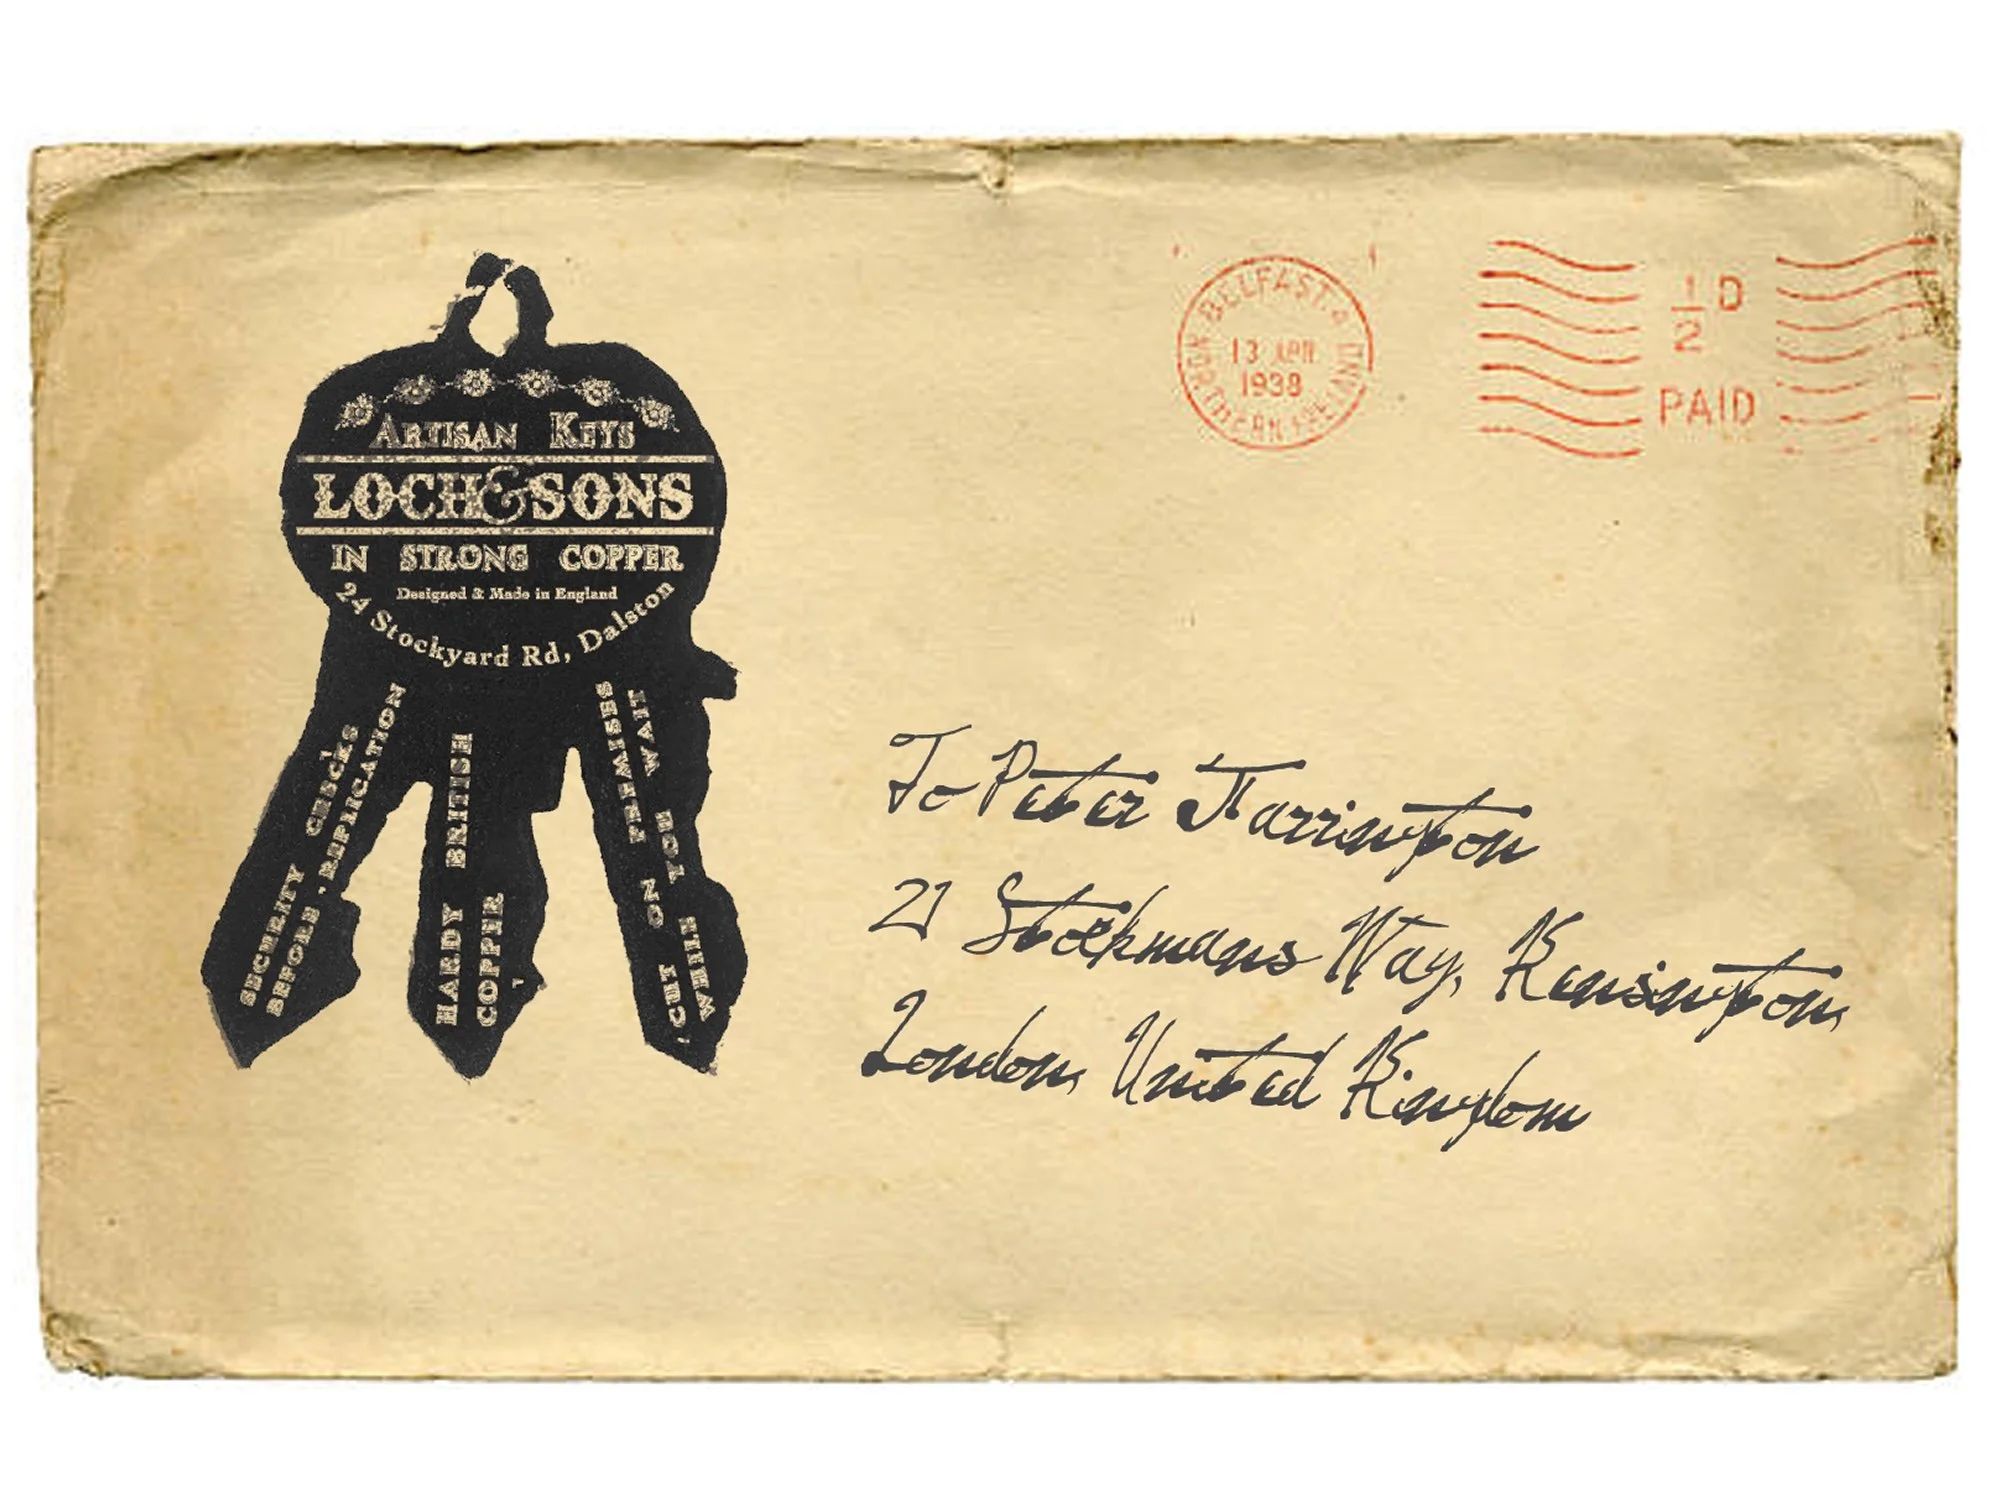 ARTISAN KEYS
LOCH & SONS
IN STRONG COPPER
Designed & Made in England
24 Stockyard Rd, Dalston
SECURITY CHECKS
BEFORE REPLICATION
HARDY BRITISH
COPPER
CUT ON PREMISES
WHILE YOU WAIT
BELFAST. 4
13 APR
1938
NORTHERN IRELAND
1/2 D
PAID
To Peter Harrington
21 Stockmans Way, Kensington,
London, United Kingdom